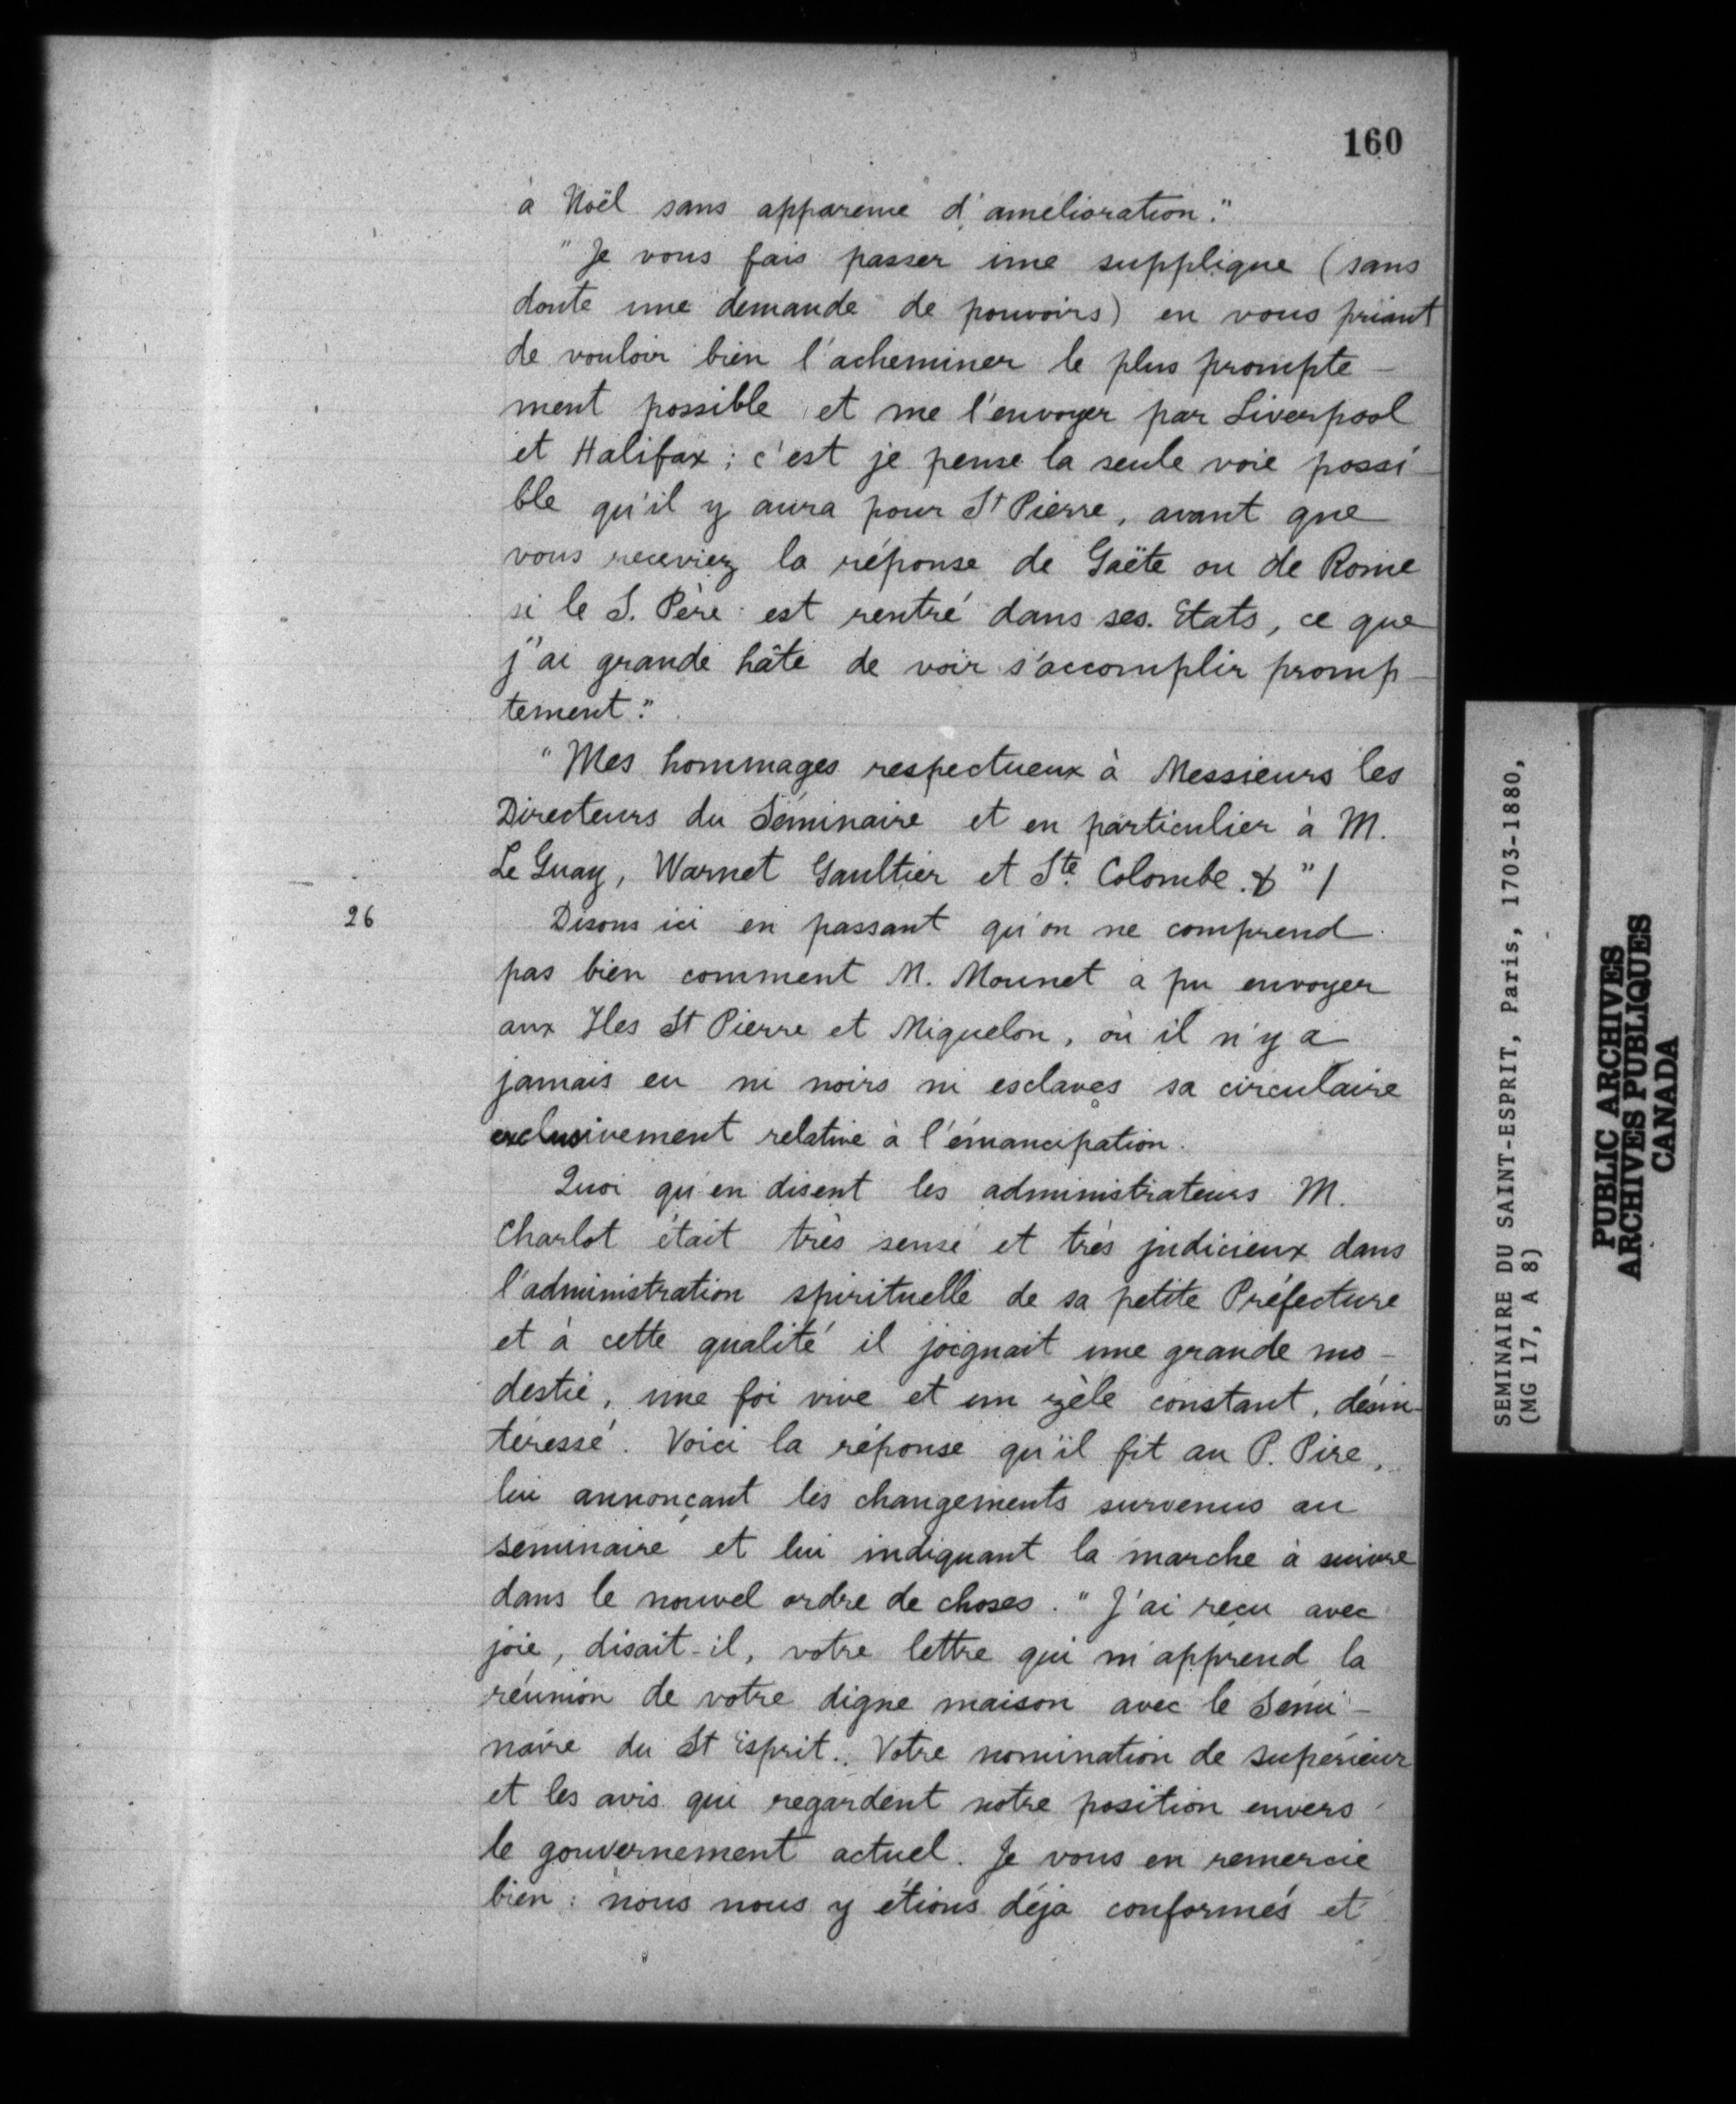 160
à Noël sans apparence d'amélioration."
"Je vous fais passer une supplique (sans
doute une demande de pouvoirs) en vous priant
de vouloir bien l'acheminer le plus prompte-
ment possible et me l'envoyer par Liverpool
et Halifax ; c'est je pense la seule voie possi-
ble qu'il y aura pour St Pierre, avant que
vous receviez la réponse de Gaëte ou de Rome
si le S. Père est rentré dans ses Etats, ce que
j'ai grande hâte de voir s'accomplir promp-
tement."
"Mes hommages respectueux à Messieurs les
Directeurs du Séminaire et en particulier à M.
Le Guay, Warnet Gaultier et Ste Colombe & "/
26
Disons ici en passant qu'on ne comprend
pas bien comment M. Mounet a pu envoyer
aux Iles St Pierre et Miquelon, où il n'y a
jamais eu ni noirs ni esclaves sa circulaire
exclusivement relative à l'émancipation.
Quoi qu'en disent les administrateurs M.
Charlot était très sensé et très judicieux dans
l'administration spirituelle de sa petite Préfecture
et à cette qualité il joignait une grande mo-
destie, une foi vive et un zèle constant, désin-
téressé. Voici la réponse qu'il fit au P. Pire,
lui annonçant les changements survenus au
séminaire et lui indiquant la marche à suivre
dans le nouvel ordre de choses. "J'ai reçu avec
joie, disait-il, votre lettre qui m'apprend la
réunion de votre digne maison avec le Sémi-
naire du St Esprit. Votre nomination de supérieur
et les avis qui regardent notre position envers
le gouvernement actuel. Je vous en remercie
bien : nous nous y étions déja conformés et
SEMINAIRE DU SAINT-ESPRIT, Paris, 1703-1880,
(MG 17, A 8)
PUBLIC ARCHIVES
ARCHIVES PUBLIQUES
CANADA